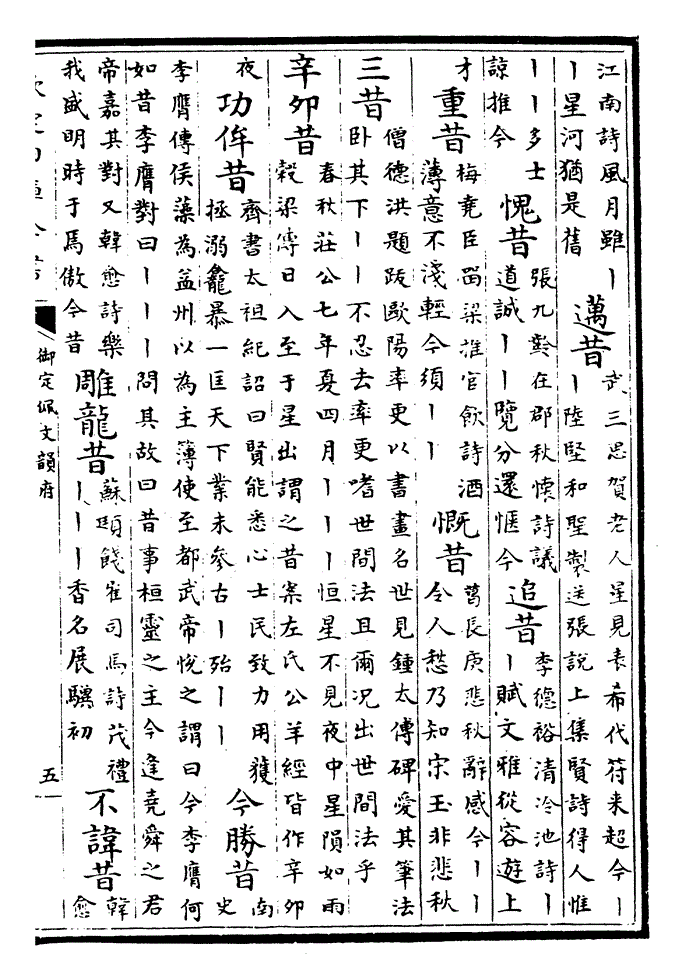 江南詩風月雖丨
丨星河猶是舊
邁昔
武三思賀老人星見表希代符来超今丨
丨陸堅和聖製送張說上集賢詩得人惟
丨丨多士
諒推今
愧昔
張九齡在郡秋懷詩議
道誠丨丨覽分還愜今
追昔
李德裕清冷池詩丨
丨賦文雅從容遊上
才
重昔
梅堯臣畱梁推官飲詩酒
薄意不淺輕今須丨丨
慨昔
葛長庚悲秋辭感今丨丨
令人愁乃知宋玉非悲秋
三昔
僧德洪題跋歐陽率更以書畫名世見鍾太傅碑愛其筆法
卧其下丨丨不忍去率更嗜世間法且爾況出世間法乎
辛卯昔
春秋莊公七年夏四月丨丨丨恒星不見夜中星隕如雨
榖梁傳日入至于星出謂之昔案左氏公羊經皆作辛卯
夜
功侔昔
齊書太祖紀詔曰賢能悉心士民致力用獲
拯溺龕暴一匡天下業未參古丨殆丨丨
今勝昔
南
史
李膺傳侯藻為益州以為主簿使至都武帝悅之謂曰今李膺何
如昔李膺對曰丨丨丨問其故曰昔事桓靈之主今逢堯舜之君
帝嘉其對又韓愈詩樂
我盛明時于焉傲今昔
雕龍昔
蘇頲餞崔司馬詩茂禮
丨丨丨香名展驥初
不諱昔
韓
愈
欽定四庫全書
御定佩文韻府
五